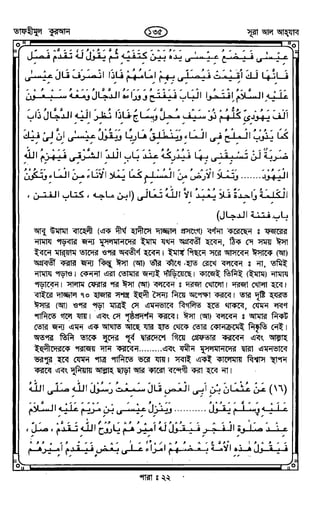 তাফহীমুল কুরআন
১৩৫
সূরা আল আহযাব
عيسى فيضع عيسى يده بين كتفيه ثم يقول له تقدم فصل
فانها لك اقيمت فيصلى بهم امامهم فاذا انصرف قال عيسى
عليه السلام افتحوا الباب فيفتح ووراءه الدجال ومعه سبعون
الف يهودى كلهم ذو سيف محلى وساج فاذا نظر اليه الدجال ذاب
كما يذوب الملح فى الماء، وينطلق هاربا ويقول عيسى ان لى فيك
ضربة لن تسبقنى بها فيدركه عند باب اللد الشرقى فيهزم الله
اليهود........ وتملأ الارض من المسلم كما يملأ الاناء من الماء، وتكون
الكلمة واحدة فلا يعبد الا الله تعالى (ابن ماجه، كتاب الفتن،
باب فتنة الدجال)
আবু উমামা বাহেলী (এক দীর্ঘ হাদীসে দাজ্জাল প্রসংগে) বর্ণনা করেছেন ঃ ফজরের
নামায পড়বার জন্য মুসলমানদের ইমাম যখন অগ্রবর্তী হবেন, ঠিক সে সময় ঈসা
ইবনে মারয়াম তাদের ওপর অবতীর্ণ হবেন। ইমাম পিছনে সরে আসবেন ঈসাকে (আ)
অগ্রবর্তী করার জন্য কিন্তু ঈসা (আ) তাঁর কাঁধে হাত রেখে বলবেন ঃ না, তুমিই
নামায পড়াও। কেননা এরা তোমার জন্যই দাঁড়িয়েছে। কাজেই তিনিই (ইমাম) নামায
পড়াবেন। সালাম ফেরার পর ঈসা (আ) বলবেন ঃ দরজা খোলো। দরজা খোলা হবে।
বাইরে দাজ্জাল ৭০ হাজার সশস্ত্র ইহুদী সৈন্য নিয়ে অপেক্ষা করবে। তার দৃষ্টি হযরত
ঈসার (আ) ওপর পড়া মাত্রই সে এমনভাবে বিগলিত হতে থাকবে, যেমন লবণ
পানিতে গলে যায়। এবং সে পৃষ্ঠপ্রদর্শন করবে। ঈসা (আ) বলবেন ঃ আমার নিকট
তোর জন্য এমন এক আঘাত আছে যার হাত থেকে তোর কোনক্রমেই নিষ্কৃতি নেই।
অতপর তিনি তাকে লুদের পূর্ব দ্বারদেশে গিয়ে গ্রেফতার করবেন এবং আল্লাহ
ইহুদীদেরকে পরাজয় দান করবেন.........এবং যমীন মুসলমানদের দ্বারা এমনভাবে
ভরপুর হবে যেমন পাত্র পানিতে ভরে যায়। সবাই একই কালেমায় বিশ্বাস স্থাপন
করবে এবং দুনিয়ায় আল্লাহ ছাড়া আর কারো বন্দেগী করা হবে না।
(١٦) عن عثمان بن ابى العاص قال سمعت رسول الله صلى الله
عليه وسلم يقول .......... وينزل عيسى بن مريم عليه السلام
عند صلوة الفجر فيقول له اميرهم ياروح الله تقدم، صل،
فيقول هذه الامة بعضهم امراء على بعض فيقدم اميرهم
পারা ঃ ২২